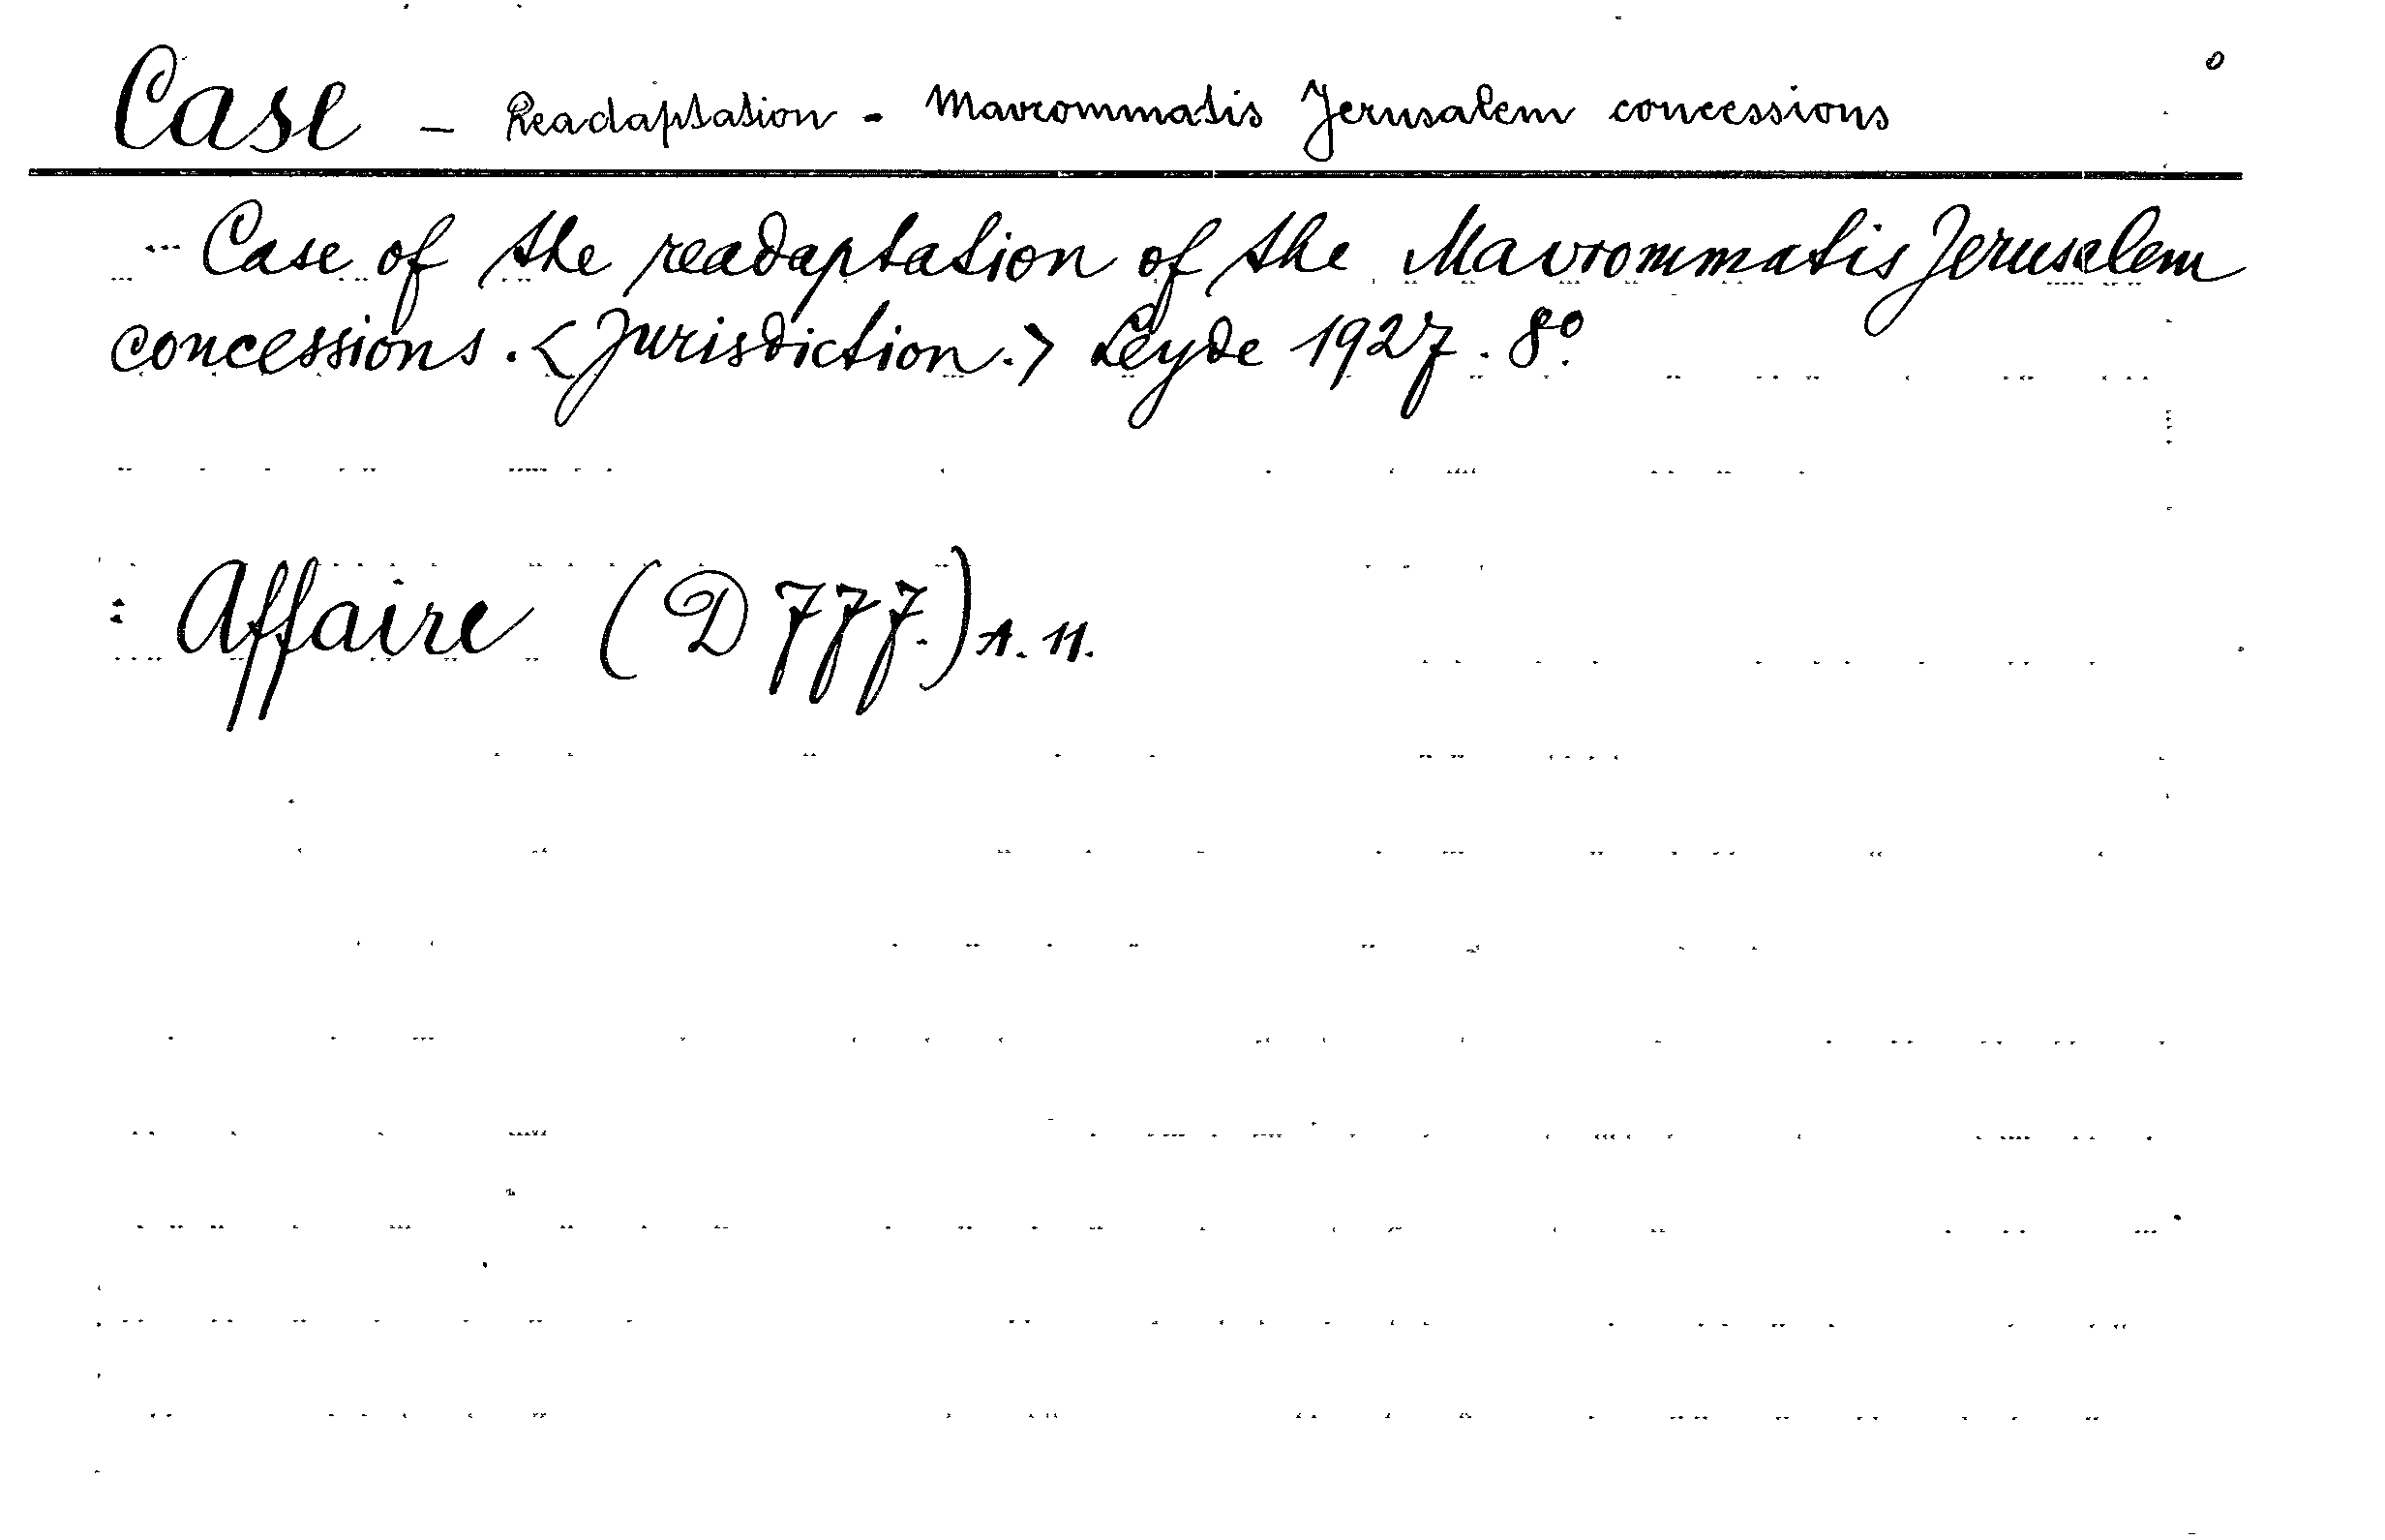 Case - Readaptation - Mavrommatis Jerusalem concessions
Case of the readaptation of the Mavrommatis Jerusalem
concessions. <Jurisdiction.> Leyde 1927. 8º.
: Affaire (D 777.) A. 11.